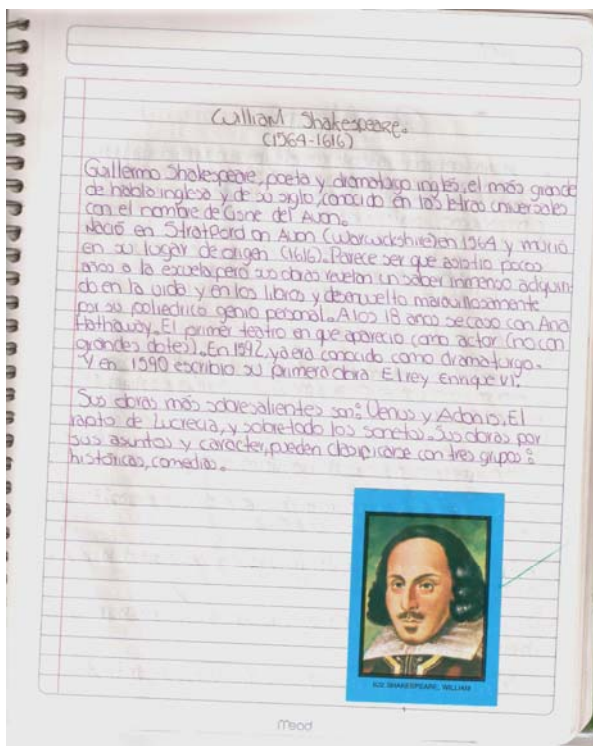 William Shakespeare.
(1564-1616)
Guillermo Shakespeare, poeta y dramaturgo inglés, el más grande
de habla inglesa y de su siglo, conocido en las letras universales
con el nombre de Cisne del Avon.
Nació en Stratford on Avon (Warwickshire) en 1564 y murió
en su lugar de origen (1616). Parece ser que asistio pocos
años a la escuela pero sus obras revelan un saber inmenso adquiri
do en la vida y en los libros y demuelto maravillosamente
por su poliedrico genio personal. A los 18 años se caso con Ana
Hathaway. El primer teatro en que aparecio como actor (no con
grandes dotes). En 1592, ya era conocido como dramaturgo.
Y en 1590 escribio su primera obra El rey Enrique VI.
Sus obras más sobresalientes son: Venus y Adonis, El
rapto de Lucrecia, y sobretodo los sonetos. Sus obras por
sus asuntos y caracter, pueden clasificarse con tres grupos:
históricas, comedias.
SHAKESPEARE, WILLIAM
Mead